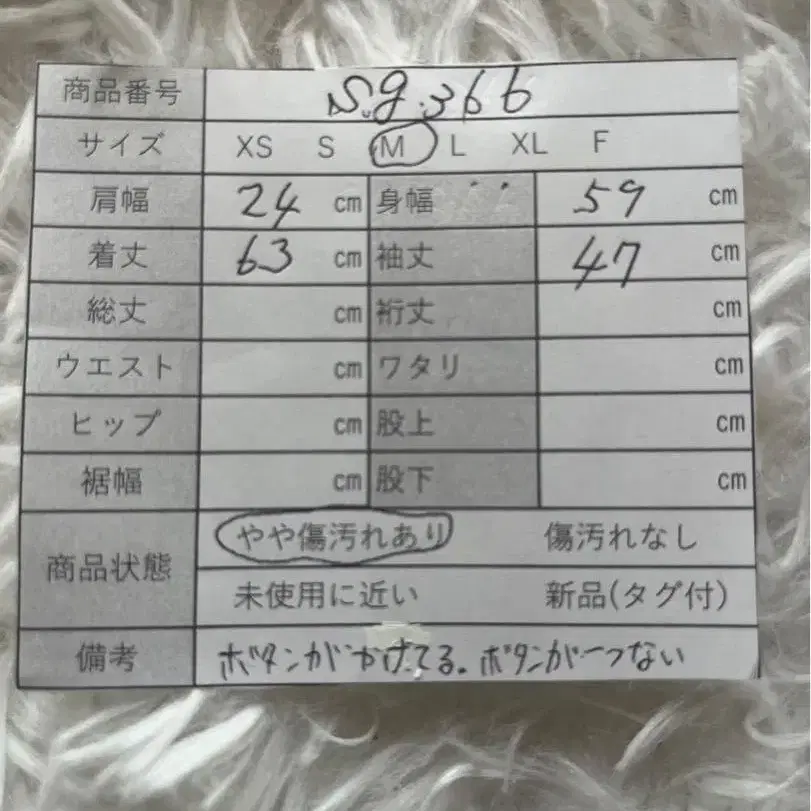 商品番号 sg.366
サイズ XS S M L XL F
肩幅 24 cm 身幅 59 cm
着丈 63 cm 袖丈 47 cm
総丈 cm 裄丈 cm
ウエスト cm ワタリ cm
ヒップ cm 股上 cm
裾幅 cm 股下 cm
商品状態 やや傷汚れあり 傷汚れなし
未使用に近い 新品(タグ付)
備考 ボタンがかけてる。ボタンが一つない